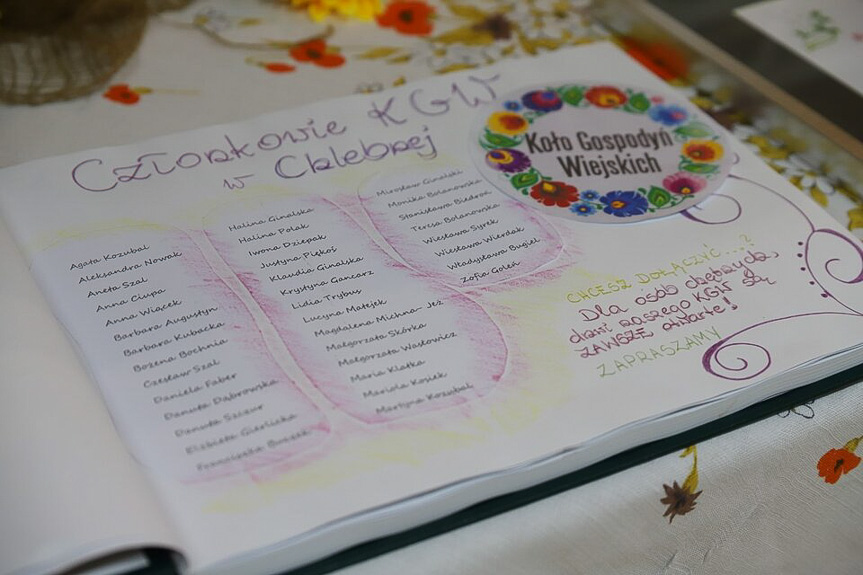 Członkowie KGW
w Chlebnej
Koło Gospodyń
Wiejskich
Agata Kozubal
Aleksandra Nowak
Aneta Szal
Anna Ciupa
Anna Wiącek
Barbara Augustyn
Barbara Kubacka
Bożena Bochnia
Czesław Szal
Daniela Faber
Danuta Dąbrowska
Danuta Szczur
Elżbieta Gierlicka
Franciszka Buczek
Halina Ginalska
Halina Polak
Iwona Dziepak
Justyna Piękoś
Klaudia Ginalska
Krystyna Gancarz
Lidia Trybus
Lucyna Matejek
Magdalena Michna-Jeż
Małgorzata Skórka
Małgorzata Wasłowicz
Maria Klatka
Mariola Kosiek
Martyna Kozubal
Mirosław Ginalski
Monika Bolanowska
Stanisława Biedroń
Teresa Bolanowska
Wiesława Syrek
Wiesława Wierdak
Władysława Bugiel
Zofia Goleń
CHCESZ DOŁĄCZYĆ...?
Dla osób chętnych,
drzwi naszego KGW są
ZAWSZE otwarte!
ZAPRASZAMY